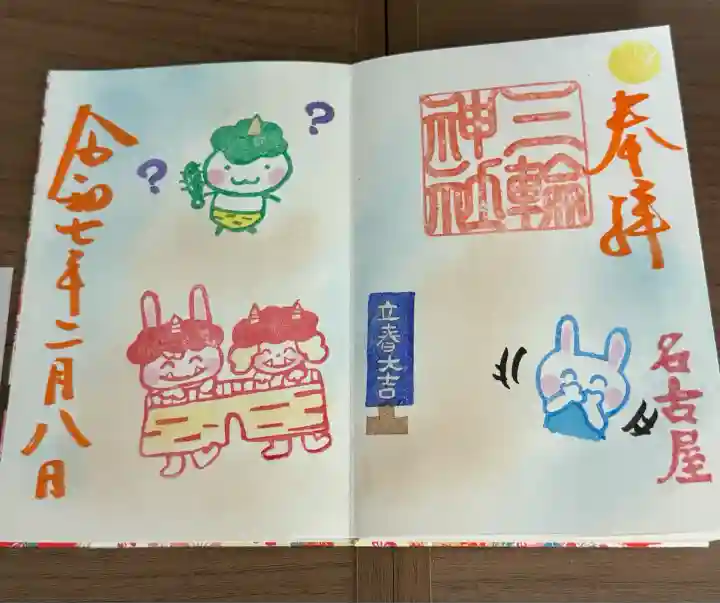 奉拝
三輪
神社
名古屋
立春大吉
?
?
令和七年二月八日